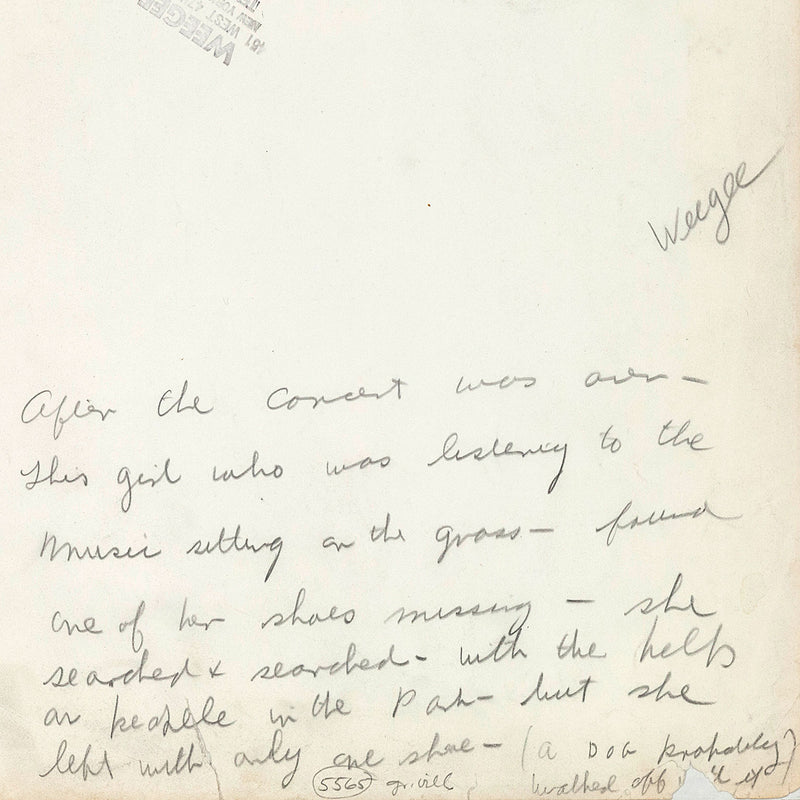 WEEGEE
451 WEST 47
NEW YORK
Weegee
After the concert was over—
This girl who was listening to the
Music sitting on the grass— found
one of her shoes missing — she
searched & searched— with the help
or people in the Park— but she
left with only one shoe— (a DOG probably)
5565 gr. vill walked off